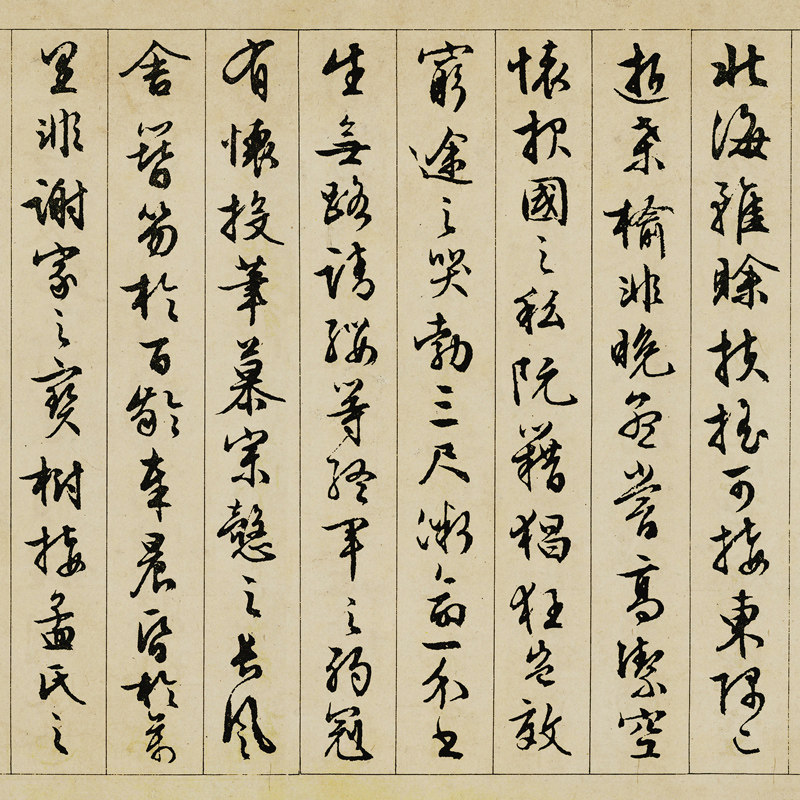 北海雖賖扶搖可接東隅已
逝桑榆非晚孟嘗高潔空
懷報國之私阮籍猖狂豈效
窮途之哭勃三尺微命一介書
生無路請纓等終軍之弱冠
有懷投筆慕宗愨之長風
舍簪笏於百齡奉晨昏於萬
里非謝家之寶樹接孟氏之